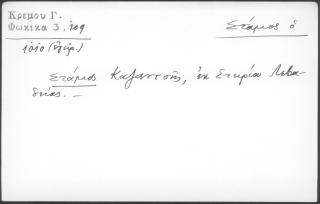 Κρεμου Γ.
Φωκικα 3, 209
Στάμος ὁ
1010 (Στειρ.)
Στάμος Καζαντσῆς, ἐκ Στειρίου Λεβα-
δείας. —